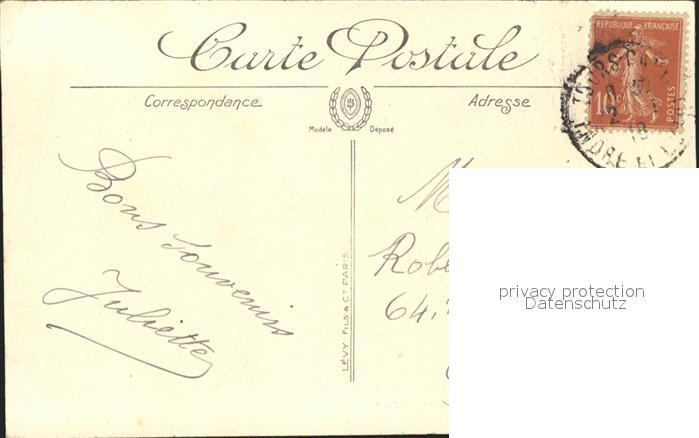 Carte Postale
Correspondance
Adresse
Modèle Déposé
RÉPUBLIQUE FRANÇAISE
10c
POSTES
TOURS
INDRE ET
Bons Souvenirs
Juliette
LÉVY FILS & Cie PARIS
M
Robe
64
privacy protection
Datenschutz